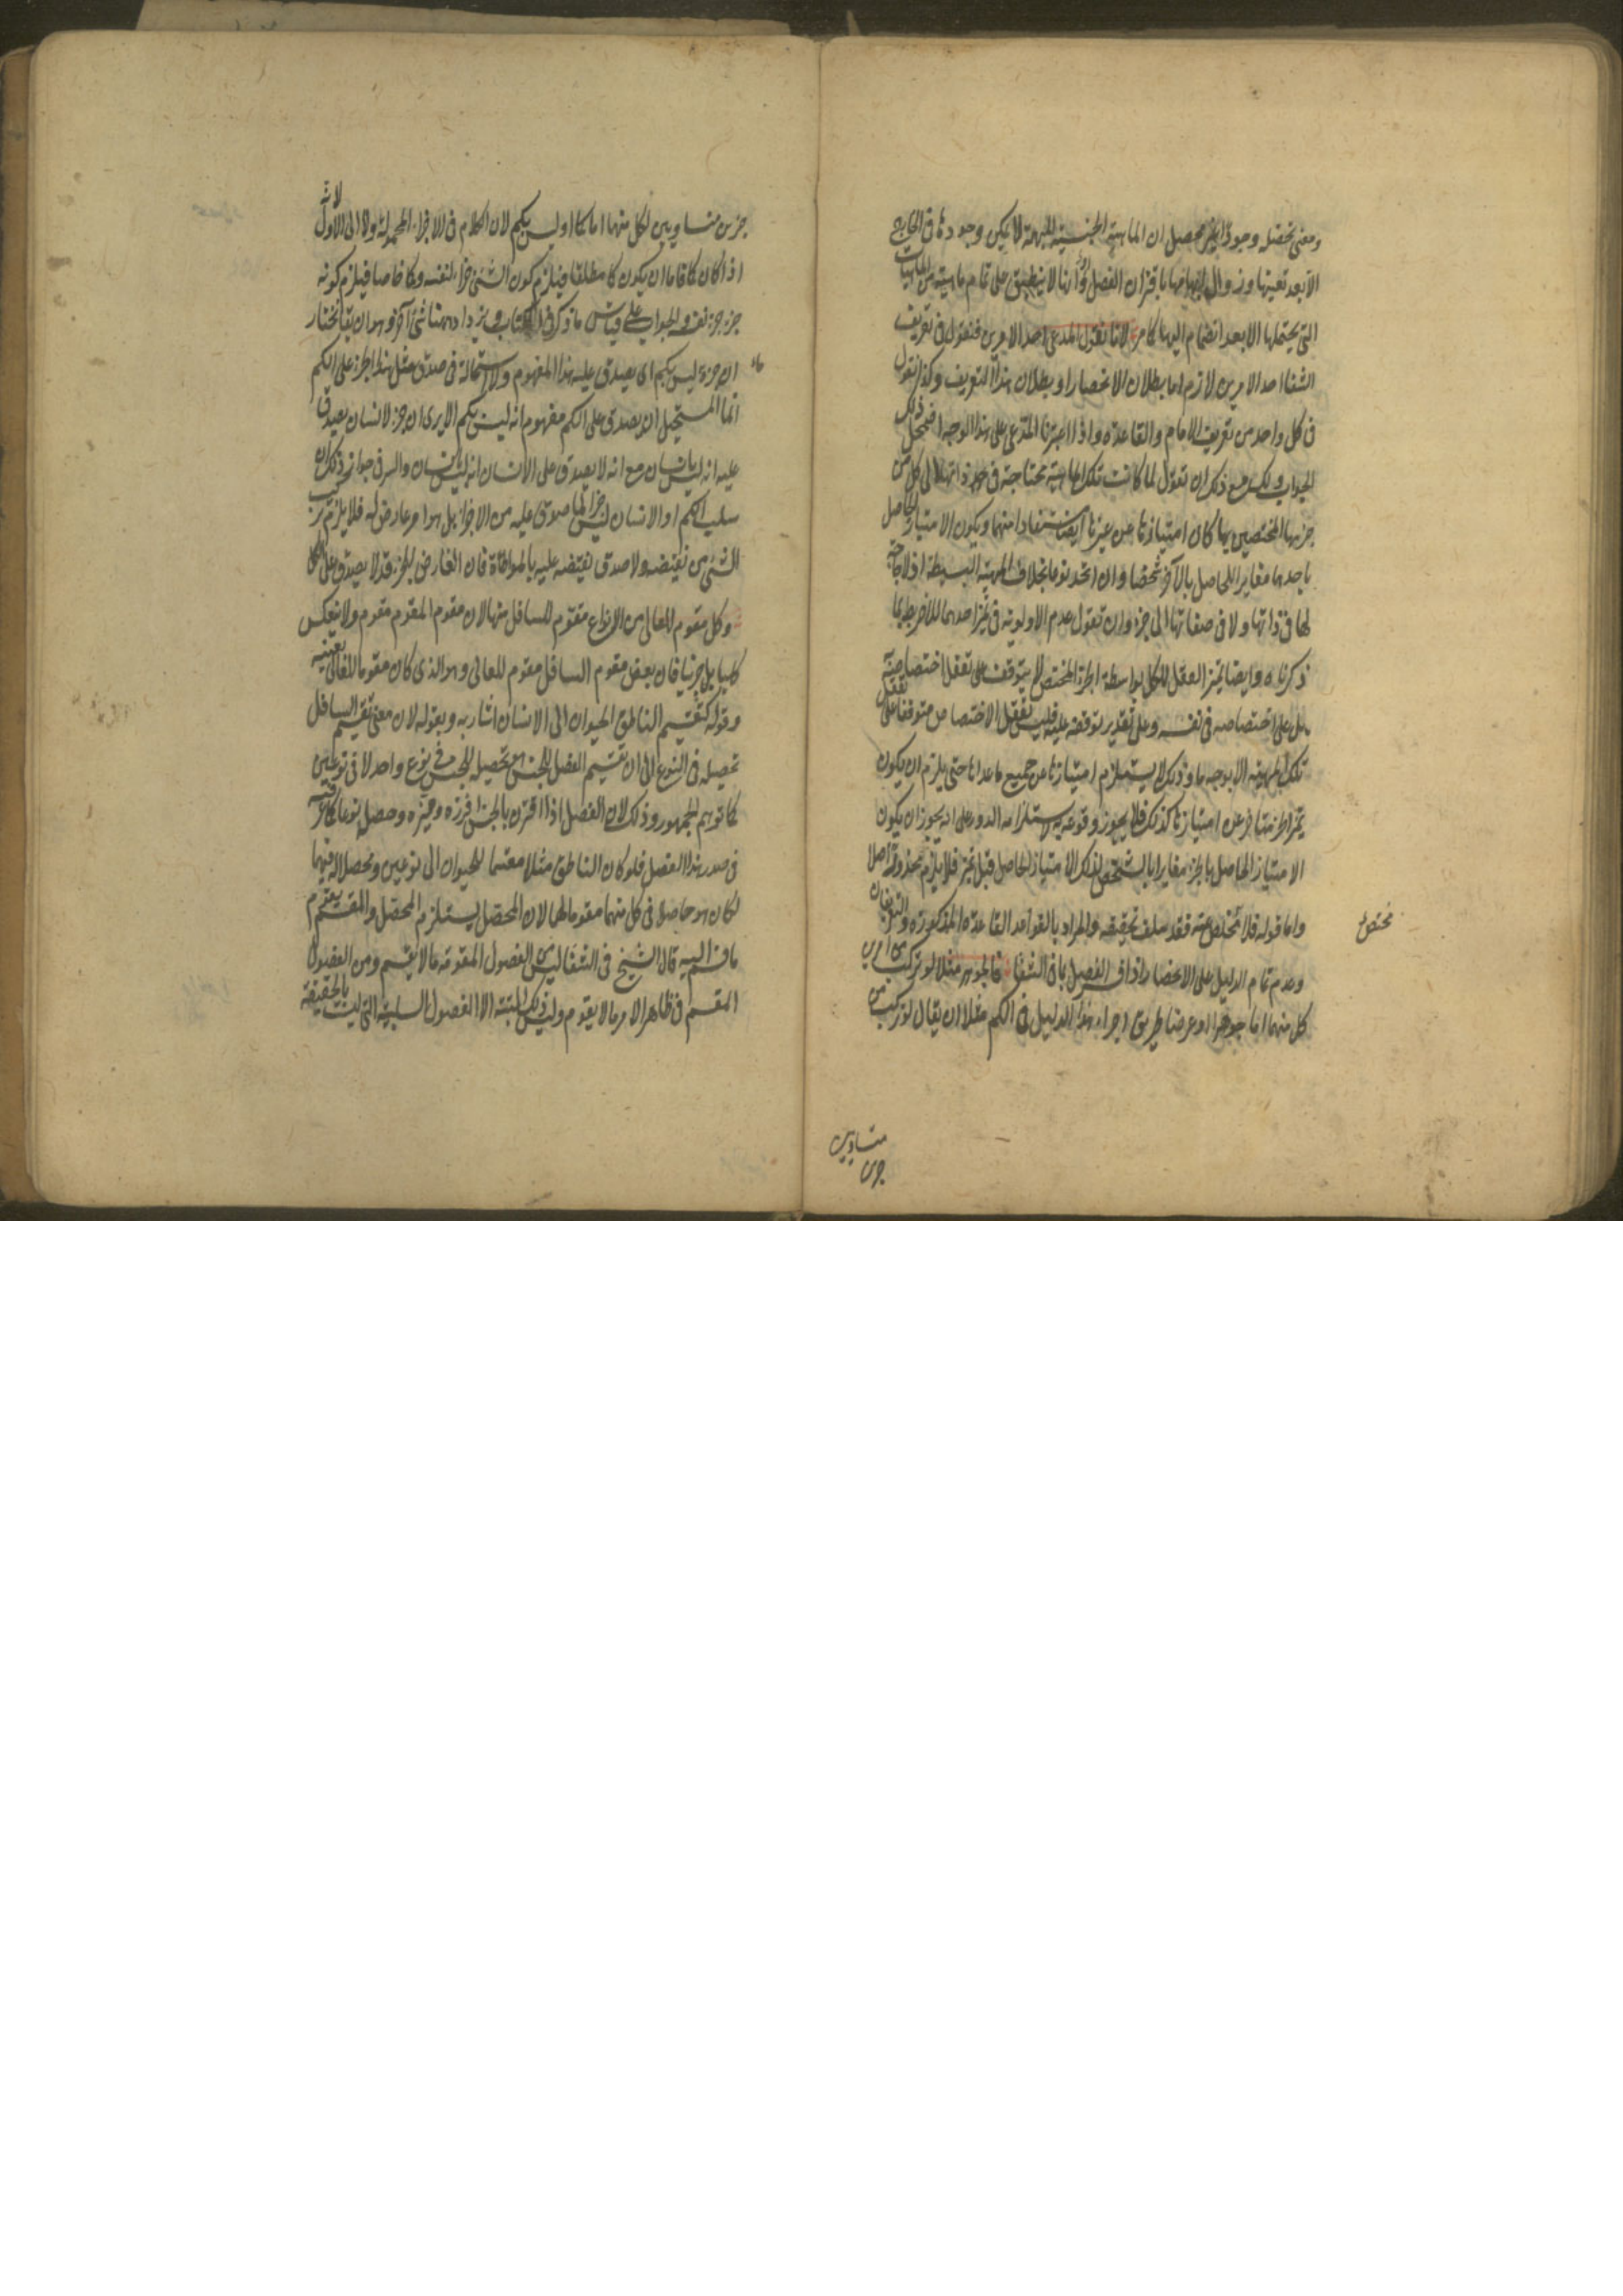 ومعنى تحصله وجودا غير محصل ان الماهية الجنسية المبهمة لا يمكن وجودها في الخارج
الا بعد تعينها وزوال ابهامها باقتران الفصل وانها لا ينطبق على تمام ماهية من الماهيات
التي يحتملها الا بعد انضمام اليها كما مر لانا نقول المدعى احد الامرين فنقول في تعريف
الشفا احد الامرين لازم اما بطلان الانحصار او بطلان هذا التعريف وكذا نقول
في كل واحد من تعريف الامام والقاعدة واذا اعتبرنا المدعى على هذا الوجه اضمحل ذلك
الجواب ولك مع ذلك ان تقول لما كانت تلك الماهية محتاجة في حد ذاتها الى كل من
جزئيها المختصين بها كان امتيازها عن غيرها ايضا مستفادا منهما ويكون الامتياز الحاصل
باحدهما مغايرا للحاصل بالآخر شخصا وان اتحد نوعا بخلاف المهية البسيطة اذ لا حاجة
لها في ذاتها ولا في صفاتها الى جزء وان تقول عدم الاولوية في تميز احدهما للآخر بطل بما
ذكرناه وايضا تميز العقل للكل بواسطة الجزء المختص لا يتوقف على تعقل اختصاصه
بل على اختصاصه في نفسه وعلى تقدير توقفه عليه فليس تعقل الاختصاص متوقفا على تعقل
تلك المهية الا بوجه ما وذلك لا يستلزم امتيازها عن جميع ما عداها حتى يلزم ان يكون
امتيازها كذلك فلا يجوز وقوعه به لاستلزامه الدور على انه يجوز ان يكون
الامتياز الحاصل بالجزء مغايرا بالشخص لذلك الامتياز الحاصل قبل فلا يلزم محذور اصلا
واما قوله فلا مخلص عنه فقد سلف تحقيقه والمراد بالقواعد القاعدة المذكورة والتعريفان
وعدم تمام الدليل على الانحصار فالجوهر مثلا لو تركب من امرين
كل منهما اما جوهر او عرض طريق اجراء هذا الدليل في الكم مثلا ان يقال لو تركب من
مختص
متساويين
جزئين متساويين لكل منهما اما كم او ليس بكم لان الكلام في الاجزاء المحمولة ولا الى الاول لانه
اذا كان كما فاما ان يكون كما مطلقا فيلزم كون الشئ جزء لنفسه وكما خاصا فيلزم كونه
جزء جزء نفسه والجواب على قياس ما ذكر في الكتاب ويزداد ههنا شئ آخر وهو ان يقال نختار
ان جزءه ليس بكم اي يصدق عليه هذا المفهوم ولا استحالة في صدق مثل هذا الجزء على الكم
انما المستحيل ان يصدق على الكم مفهوم انه ليس بكم الا يرى ان جزء الانسان يصدق
عليه انه ليس بانسان مع انه لا يصدق على الانسان انه ليس بانسان والسر في جواز ذلك ان
سلب الكم او الانسان ليس جزء لما صدق عليه من الاجزاء بل هو امر عارض له فلا يلزم تركب
الشئ من نقيضه ولا صدق نقيضه عليه بالمواطاة فان العارض للجزء قد لا يصدق على الكل
وكل مقوم للعالي من الانواع مقوم للسافل منها لان مقوم المقوم مقوم ولا ينعكس
كليا بل جزئيا فان بعض مقوم السافل مقوم للعالي وهو الذي كان مقوما للعالي بعينه
وقوله كتقسيم الناطق الحيوان الى الانسان اشار به وبقوله لان معنى تقسيم السافل
تحصيله في النوع الى ان تقسيم الفصل للجنس هو تحصيله للجنس في نوع واحد لا في نوعين
كما توهم الجمهور وذلك لان الفصل اذا اقترن بالجنس افرزه وميزه وحصله نوعا كما عرفته
في صدر هذا الفصل فلو كان الناطق مثلا مقسما للحيوان الى نوعين ومحصلا له فيهما
لكان هو حاصلا في كل منهما مقوما لهما لان المحصل يستلزم المحصل والمقسم يقوم
ما قسم اليه قال الشيخ في الشفا ليس من الفصول المقومة ما لا يقسم ومن الفصول
المقسم في ظاهر الامر ما لا يقوم وليس ذلك البتة الا الفصول السلبية التي ليست بالحقيقة